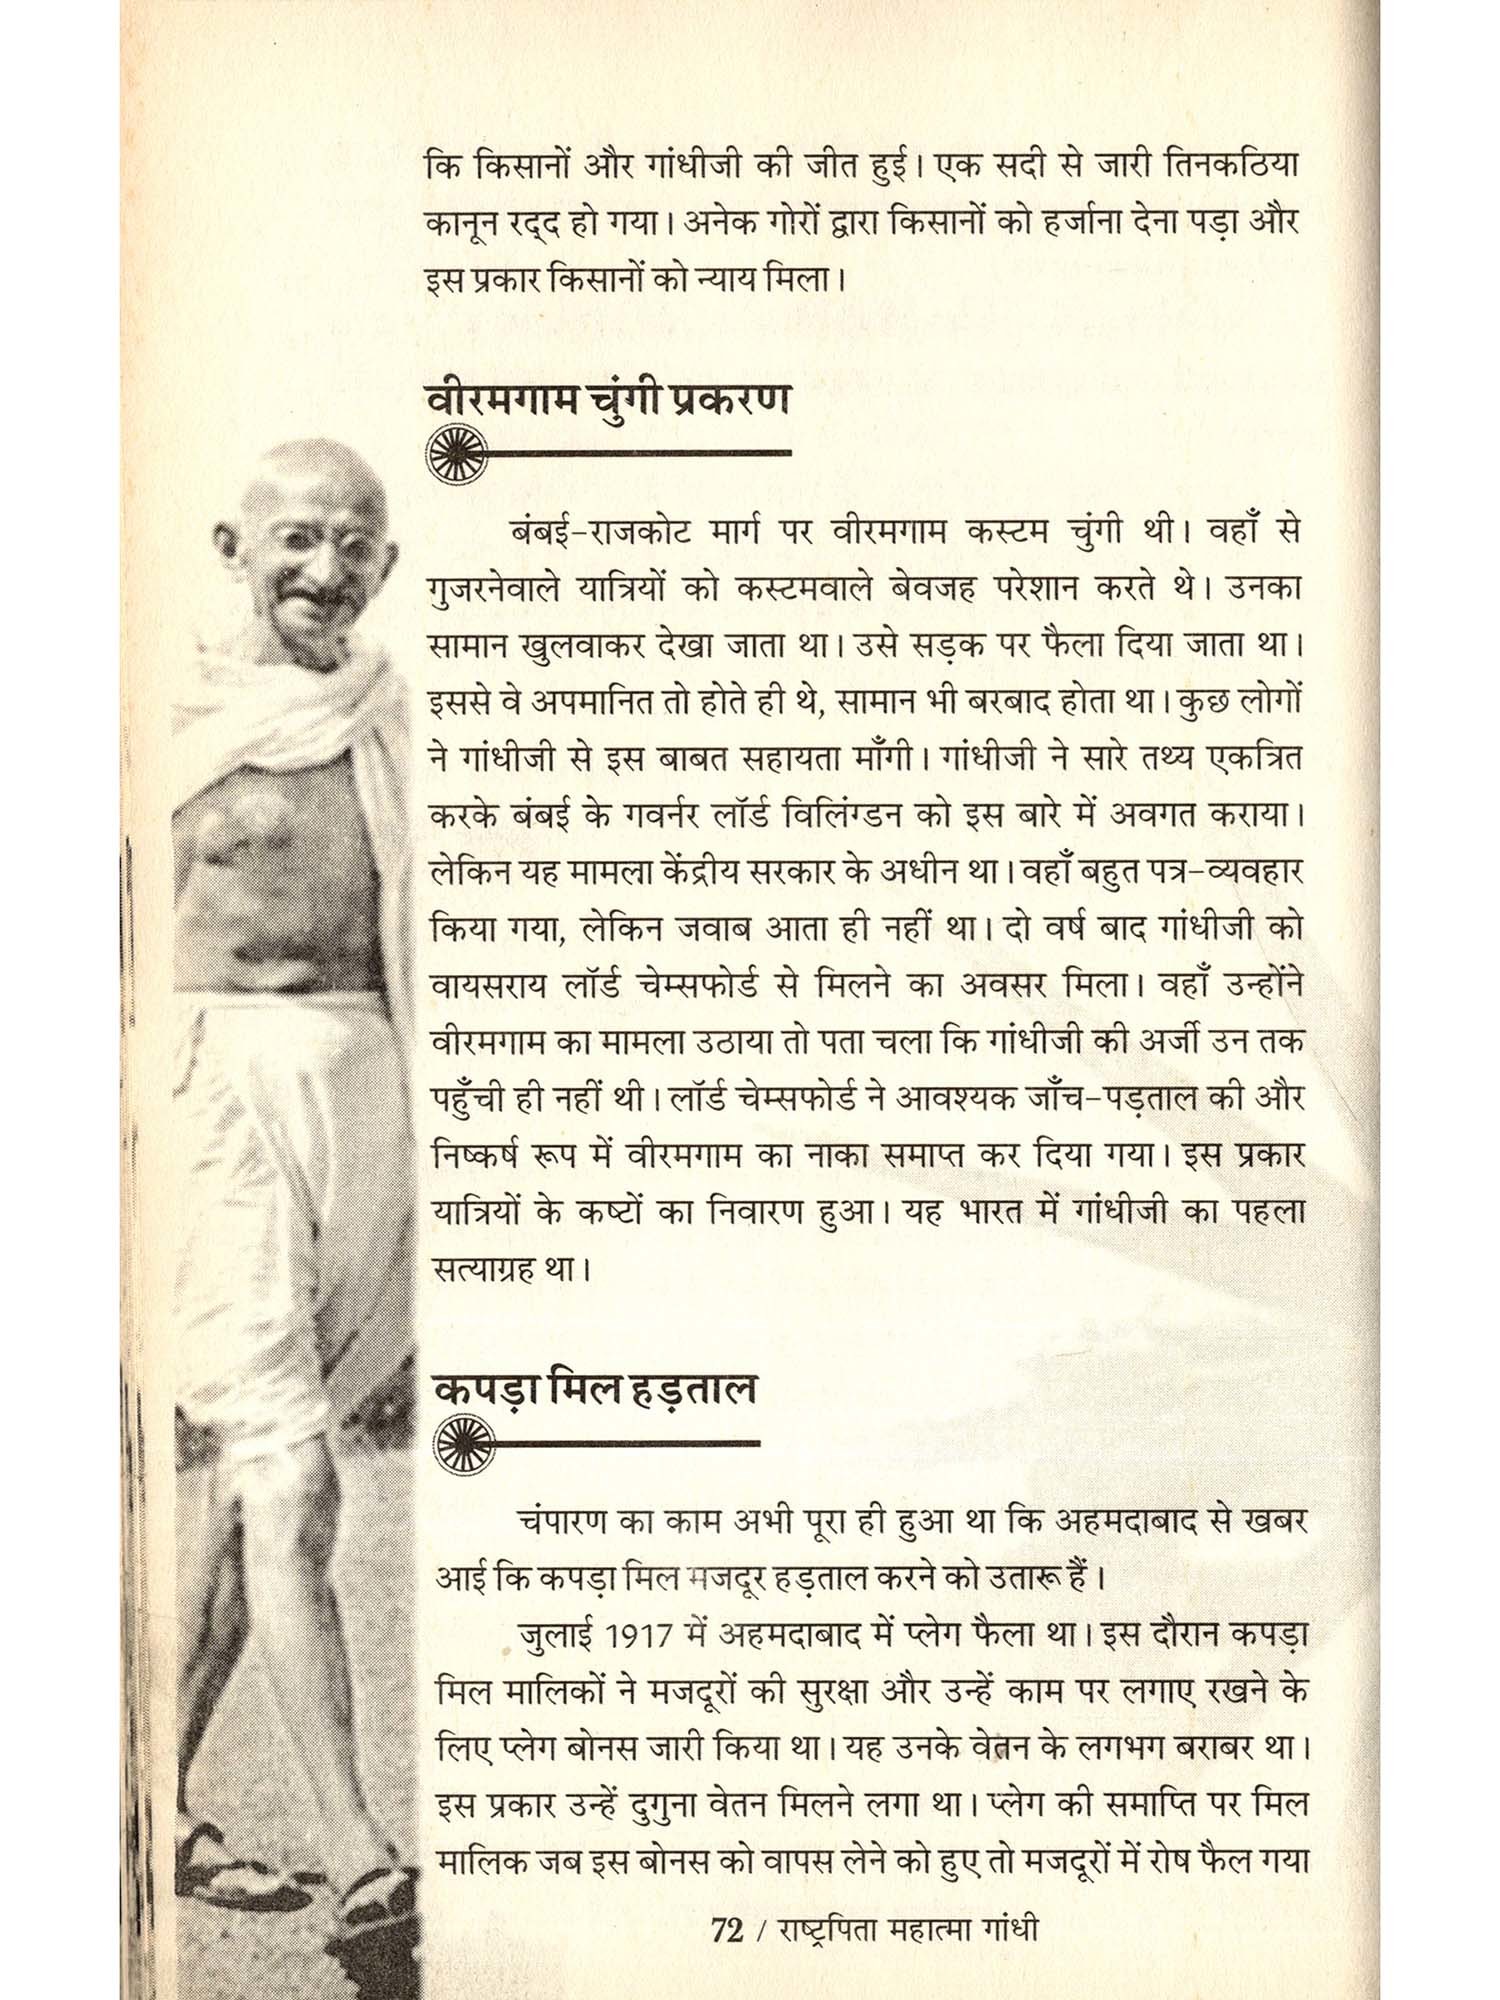 कि किसानों और गांधीजी की जीत हुई। एक सदी से जारी तिनकठिया
कानून रद्द हो गया। अनेक गोरों द्वारा किसानों को हर्जाना देना पड़ा और
इस प्रकार किसानों को न्याय मिला।
वीरमगाम चुंगी प्रकरण
बंबई-राजकोट मार्ग पर वीरमगाम कस्टम चुंगी थी। वहाँ से
गुजरनेवाले यात्रियों को कस्टमवाले बेवजह परेशान करते थे। उनका
सामान खुलवाकर देखा जाता था। उसे सड़क पर फैला दिया जाता था।
इससे वे अपमानित तो होते ही थे, सामान भी बरबाद होता था। कुछ लोगों
ने गांधीजी से इस बाबत सहायता माँगी। गांधीजी ने सारे तथ्य एकत्रित
करके बंबई के गवर्नर लॉर्ड विलिंग्डन को इस बारे में अवगत कराया।
लेकिन यह मामला केंद्रीय सरकार के अधीन था। वहाँ बहुत पत्र-व्यवहार
किया गया, लेकिन जवाब आता ही नहीं था। दो वर्ष बाद गांधीजी को
वायसराय लॉर्ड चेम्सफोर्ड से मिलने का अवसर मिला। वहाँ उन्होंने
वीरमगाम का मामला उठाया तो पता चला कि गांधीजी की अर्जी उन तक
पहुँची ही नहीं थी। लॉर्ड चेम्सफोर्ड ने आवश्यक जाँच-पड़ताल की और
निष्कर्ष रूप में वीरमगाम का नाका समाप्त कर दिया गया। इस प्रकार
यात्रियों के कष्टों का निवारण हुआ। यह भारत में गांधीजी का पहला
सत्याग्रह था।
कपड़ा मिल हड़ताल
चंपारण का काम अभी पूरा ही हुआ था कि अहमदाबाद से खबर
आई कि कपड़ा मिल मजदूर हड़ताल करने को उतारू हैं।
जुलाई 1917 में अहमदाबाद में प्लेग फैला था। इस दौरान कपड़ा
मिल मालिकों ने मजदूरों की सुरक्षा और उन्हें काम पर लगाए रखने के
लिए प्लेग बोनस जारी किया था। यह उनके वेतन के लगभग बराबर था।
इस प्रकार उन्हें दुगुना वेतन मिलने लगा था। प्लेग की समाप्ति पर मिल
मालिक जब इस बोनस को वापस लेने को हुए तो मजदूरों में रोष फैल गया
72 / राष्ट्रपिता महात्मा गांधी